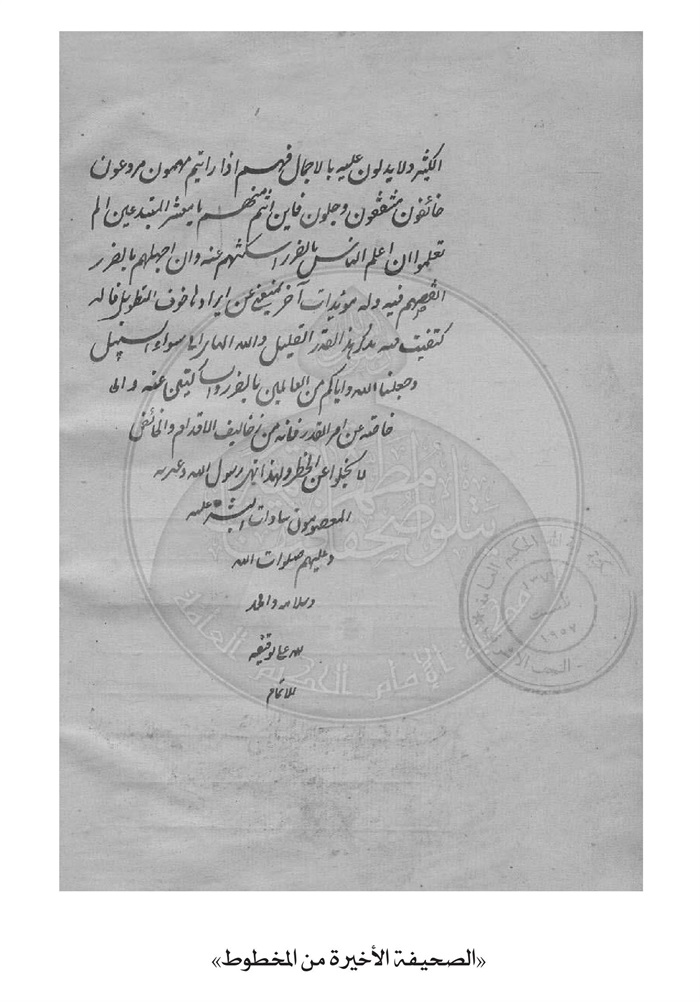 الكثير ولا يدلون عليه بالاجمال فهم اذا رايتم مهمون مروعون
خائفون مشفقون وجلون فاين انتم منهم يا معشر المبتدعين الم
تعلموا ان اعلم الناس بالضرر اسكتهم عنه وان اجهلهم بالضرر
انطقهم فيه وله مويدات آخر يمنعني عن ايرادها خوف التطويل فالـ
كتفيت منه بذكر هذا القدر القليل والله الهادي الى سواء السبيل
وجعلنا الله واياكم من العالمين بالضرر والساكتين عنه
خاصه عن امر القدر فانه من مخاليف الاقدام والخائض
لا يخلوا عن الخطر ولهذا نهى رسول الله وعترته
المعصومون سادات البشر عليه
وعليهم صلوات الله
وسلامه والحمد
لله على توفيقه
للاتمام
مكتبة الإمام الحكيم العامة
تأسست
١٩٥٧
النجف الأشرف
«الصحيفة الأخيرة من المخطوط»